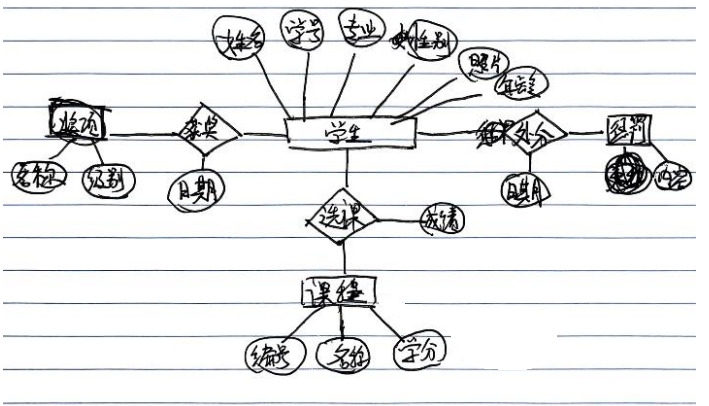 姓名 学号 专业 性别
照片
奖项 获奖 学生 处分 惩罚
名称 级别 日期 日期 内容
选课 成绩
课程
编号 名称 学分